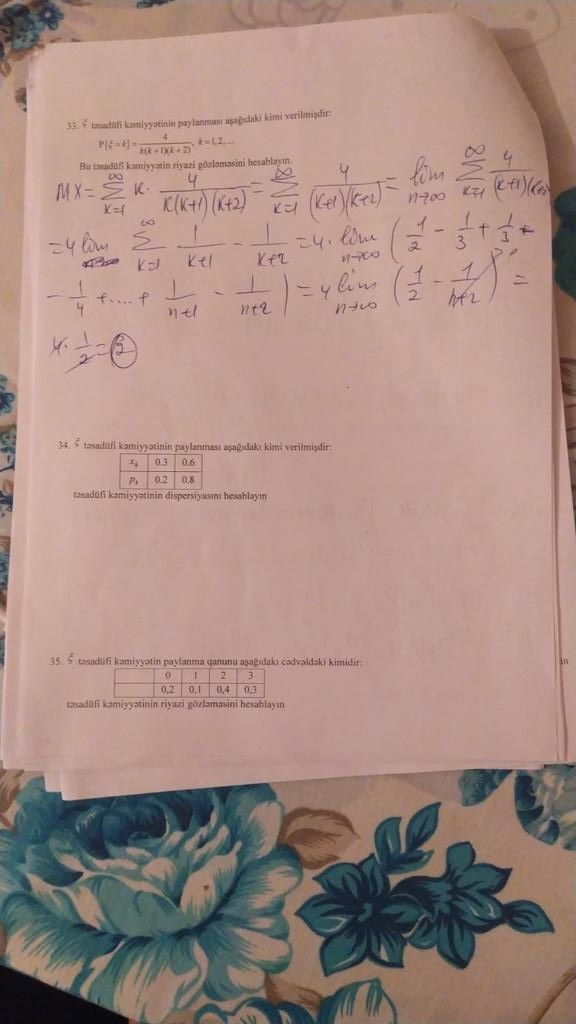 33. ξ təsadüfi kəmiyyətinin paylanması aşağıdaki kimi verilmişdir:
P{ξ = k} = 4/(k(k+1)(k+2)), k = 1,2,...
Bu təsadüfi kəmiyyətin riyazi gözləməsini hesablayın.
MX = ∑_{k=1}^{∞} k · 4/(k(k+1)(k+2)) = ∑_{k=1}^{∞} 4/((k+1)(k+2)) = lim_{n→∞} ∑_{k=1}^{∞} 4/((k+1)(k+2)
= 4 lim ∑_{k=1}^{∞} 1/(k+1) - 1/(k+2) = 4 · lim_{n→∞} (1/2 - 1/3 + 1/3 -
- 1/4 + .... + 1/(n+1) - 1/(n+2)) = 4 lim_{n→∞} (1/2 - 1/(n+2)) =
4 · 1/2 = 2
34. ξ təsadüfi kəmiyyətinin paylanması aşağıdakı kimi verilmişdir:
x_k 0.3 0.6
p_k 0.2 0.8
təsadüfi kəmiyyətinin dispersiyasını hesablayın
35. ξ təsadüfi kəmiyyətin paylanma qanunu aşağıdakı cədvəldəki kimidir:
0 1 2 3
0,2 0,1 0,4 0,3
təsadüfi kəmiyyətinin riyazi gözləməsini hesablayın